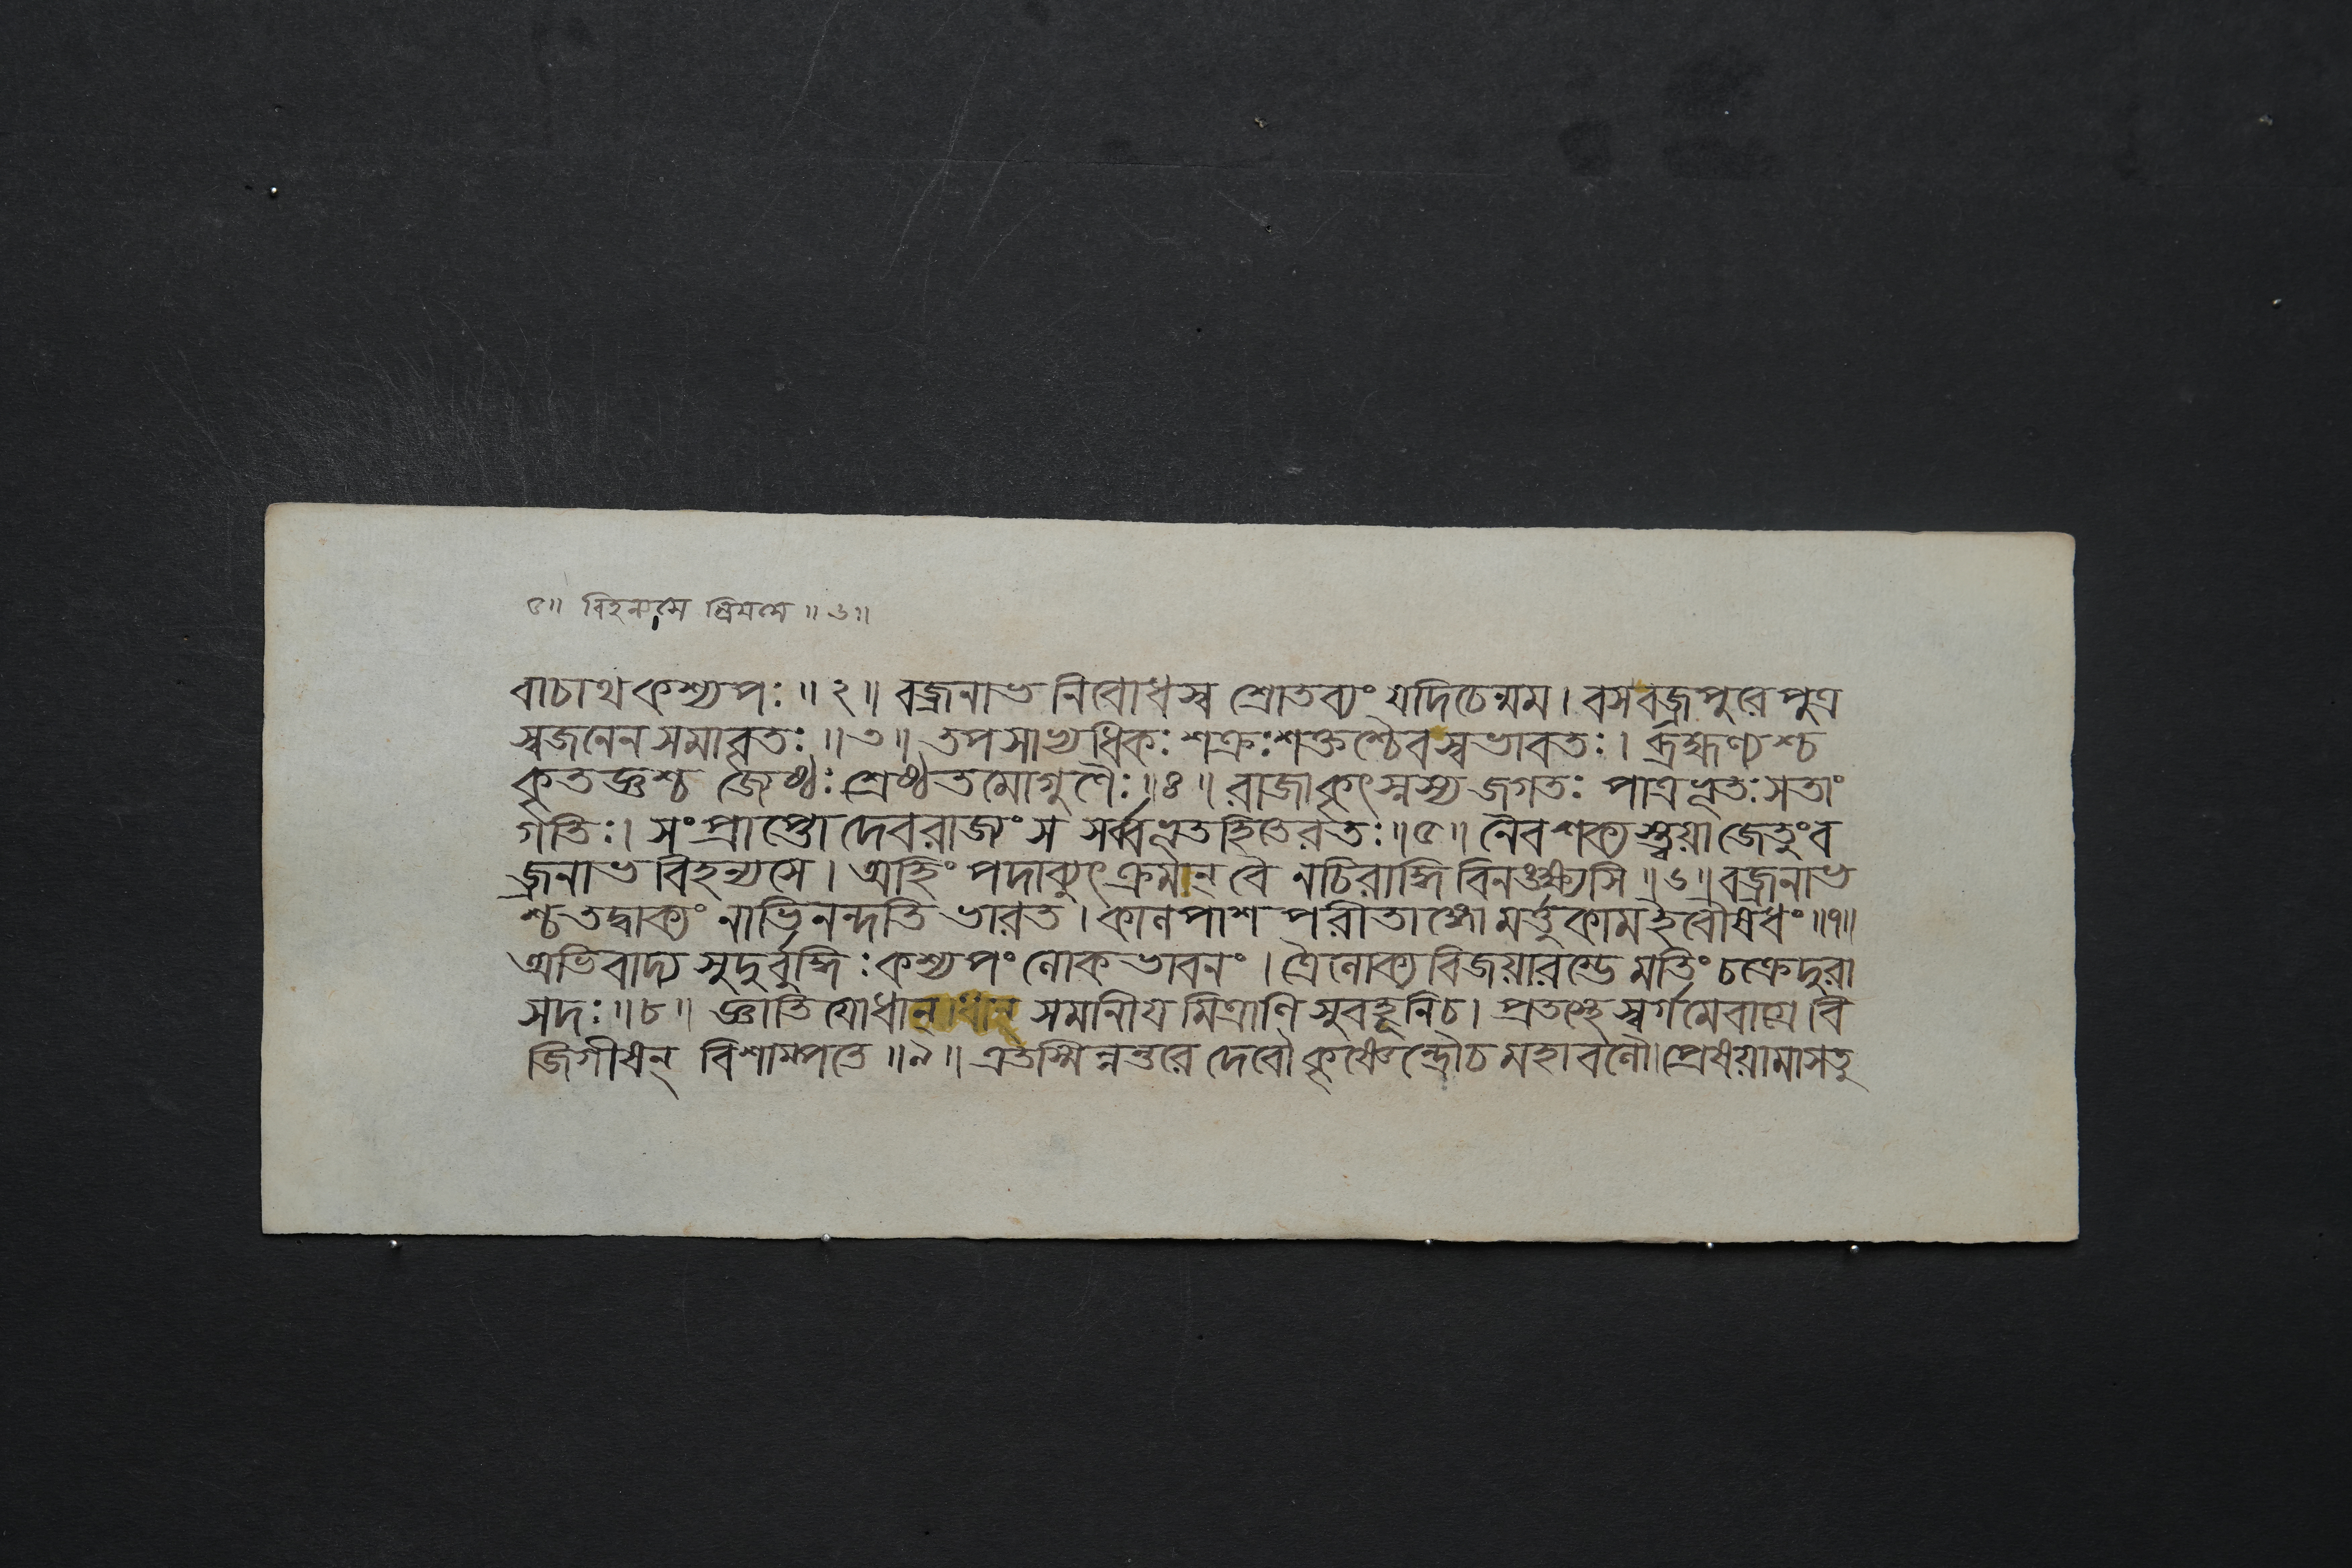 ৫॥ বিহন্যসে ম্রিয়সে ॥৬॥
বাচাথ কশ্যপঃ ॥২॥ বজ্রনাভ নিবোধস্ব শ্রোতব্যং যদি চেন্মম। বস বজ্রপুরে পুত্র
স্বজনেন সমাবৃতঃ ॥৩॥ তপসাভ্যধিকঃ শক্রঃ শক্তশ্চৈব স্বভাবতঃ। ব্রহ্মণ্যশ্চ
কৃতজ্ঞশ্চ জ্যেষ্ঠঃ শ্রেষ্ঠতমো গুণৈঃ ॥৪॥ রাজা কৃৎস্নস্য জগতঃ পাত্রভূতঃ সতাং
গতিঃ। সংপ্রাপ্তো দেবরাজং স সর্ব্বভূতহিতে রতঃ ॥৫॥ নৈব শক্যস্ত্বয়া জেতুং ব
জ্রনাভ বিহন্যসে। অহিং পদাব্যুৎক্রমান্ বৈ নচিরাদ্ধি বিনঙ্ক্ষ্যসি ॥৬॥ বজ্রনাভ
শ্চ তদ্বাক্যং নাভিনন্দতি ভারত। কালপাশপরীতাঙ্গো মর্ত্তুকাম ইবৌষধং ॥৭॥
অভিবাদ্য সুদুর্বুদ্ধিঃ কশ্যপং লোকভাবনং। ত্রৈলোক্যবিজয়ারম্ভে মতিং চক্রে দুরা
সদঃ ॥৮॥ জ্ঞাতিযোধান্ সমানীয় মিত্রাণি সুবহূনি চ। প্রতস্থে স্বর্গমেবাগ্রে বি
জিগীষন্ বিশাম্পতে ॥৯॥ এতস্মিন্নন্তরে দেবৌ কৃষ্ণেন্দ্রৌ চ মহাবলৌ। প্রেষয়ামাসতু